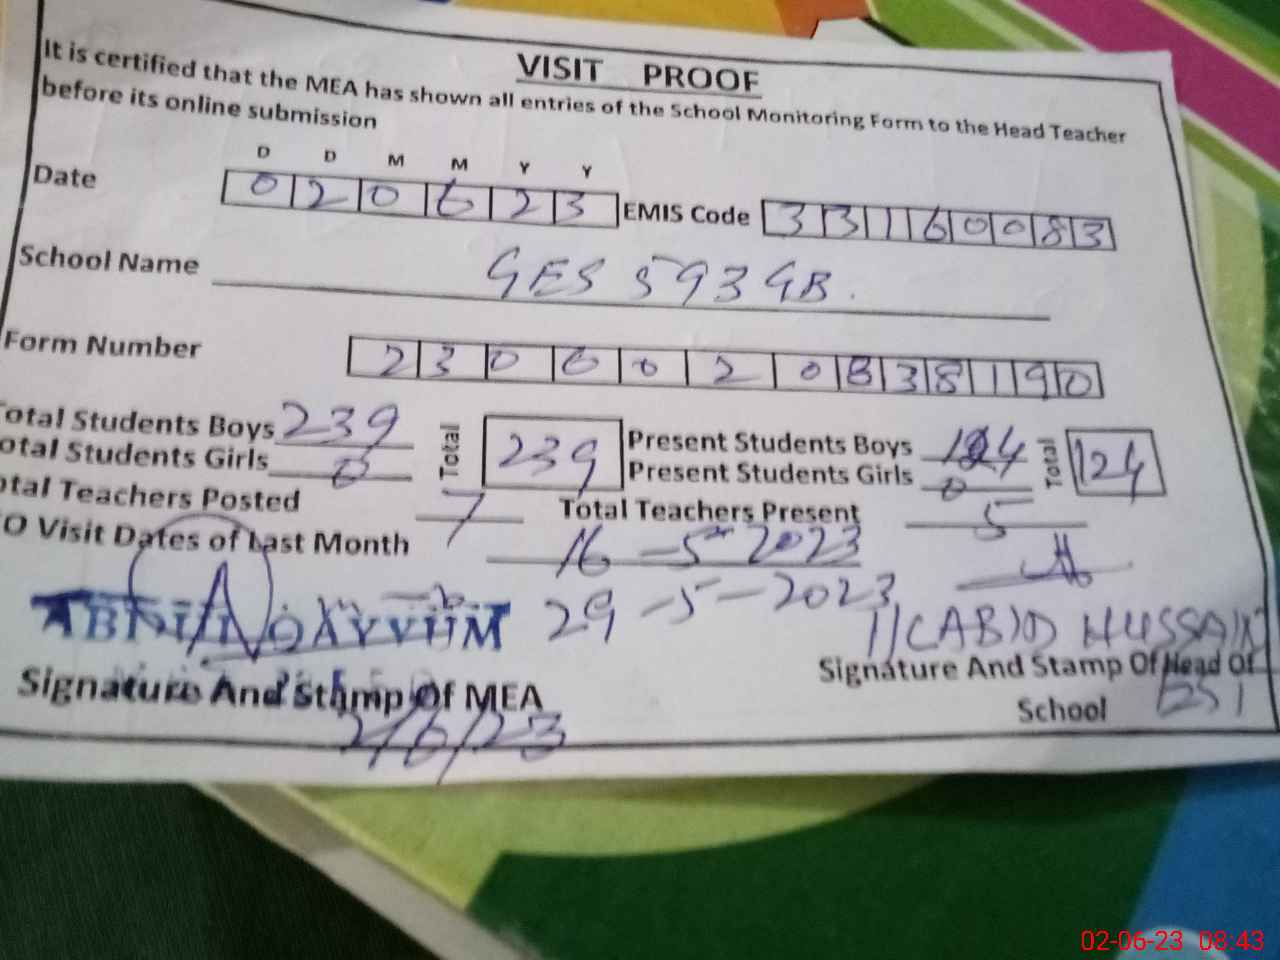 VISIT PROOF
It is certified that the MEA has shown all entries of the School Monitoring Form to the Head Teacher
before its online submission
D D M M Y Y
Date 0 2 0 6 2 3 EMIS Code 3 3 1 1 6 0 0 8 3
School Name GES 593 GB.
Form Number 2 3 0 6 0 2 0 8 3 8 1 9 0
otal Students Boys 239 Total 239 Present Students Boys 124 Total 124
otal Students Girls 0 Present Students Girls 0
otal Teachers Posted 7 Total Teachers Present 5
O Visit Dates of Last Month 16-5-2023
29-5-2023
ABID HUSSAIN
Signature And Stamp Of MEA Signature And Stamp Of Head Of
School
2/6/23
02-06-23 08:43